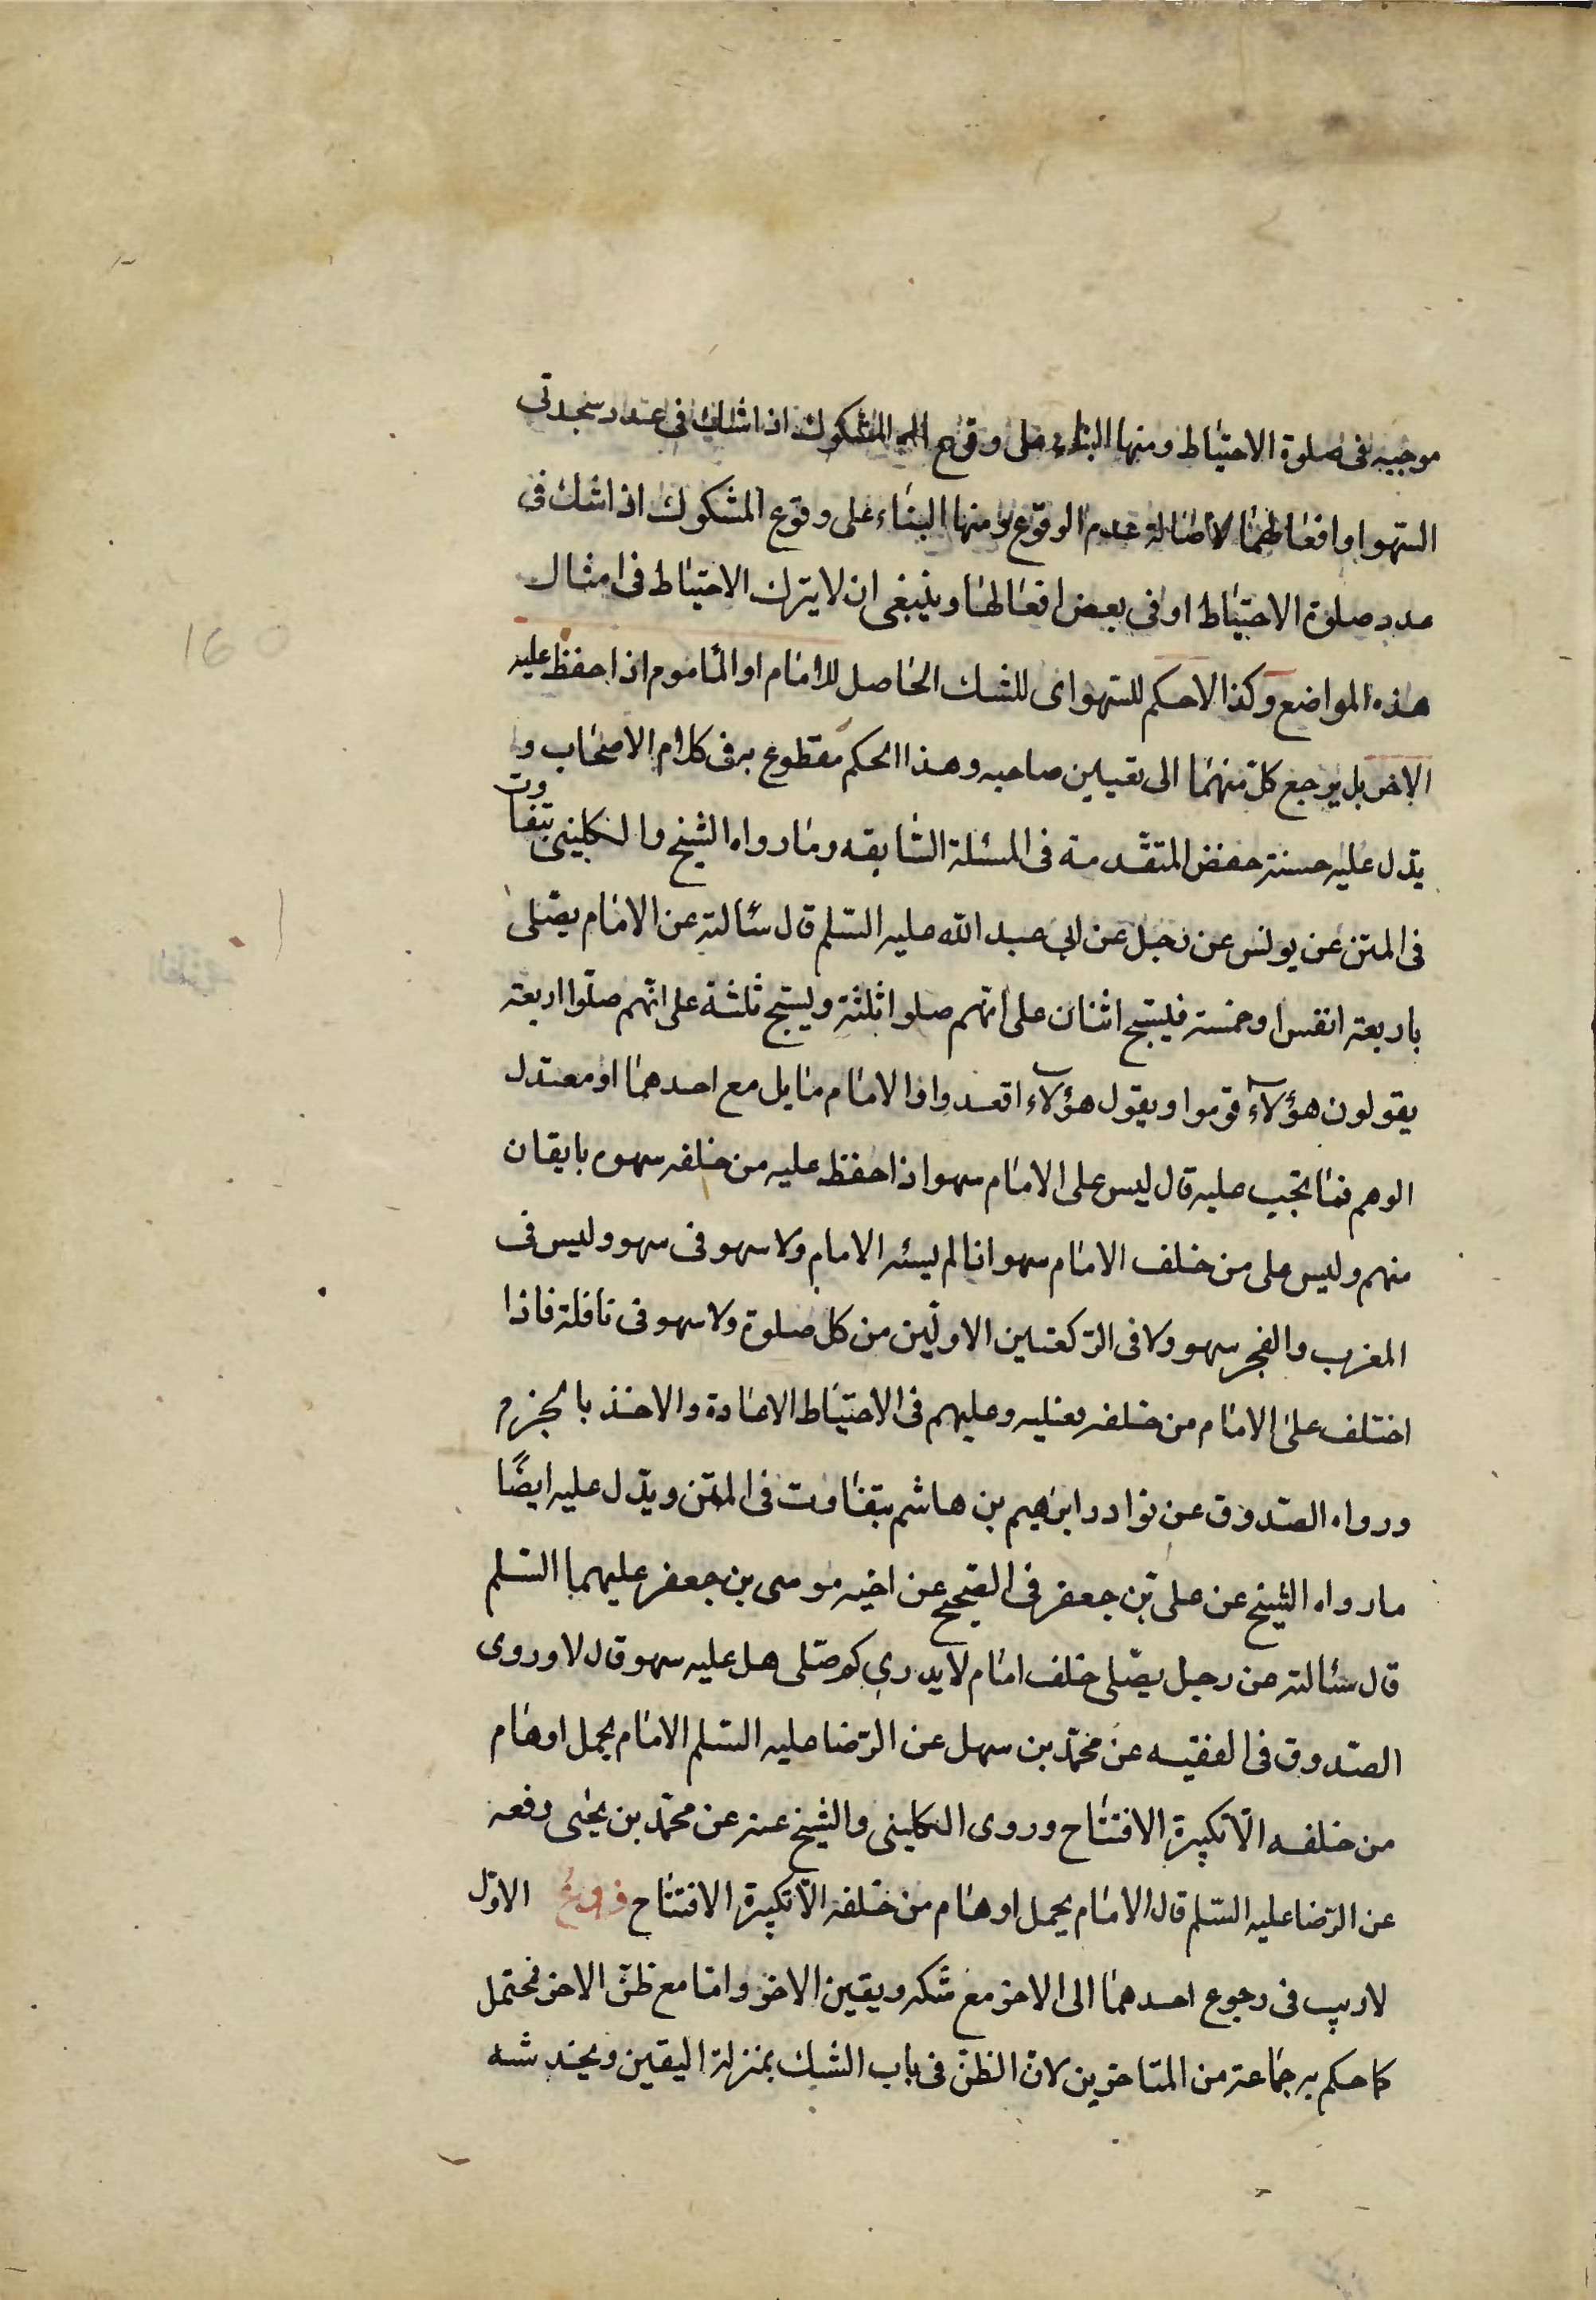 موجبيه فى صلوة الاحتياط ومنها البناء على وقوع المشكوك اذا شك فى عدد سجدتى
السهو او افعالهما لاصالة عدم الوقوع ومنها البناء على وقوع المشكوك اذا شك فى
عدد صلوة الاحتياط او فى بعض افعالها وينبغى ان لا يترك الاحتياط فى امثال
هذه المواضع وكذا لا حكم للسهو اى للشك الحاصل للامام او الماموم اذا حفظ عليه
الاخر بل يرجع كل منهما الى تعيين صاحبه وهذا الحكم مقطوع به فى كلام الاصحاب و
يدل عليه حسنة حفص المتقدمة فى المسئلة السابقه وما رواه الشيخ والكلينى بتفاوت
فى المتن عن يونس عن رجل عن ابى عبد الله عليه السلم قال سئالته عن الامام يصلى
باربعة انفس او خمسة فيسبح اثنان على انهم صلوا ثلثة ويسبح ثلثة على انهم صلوا اربعة
يقولون هؤلاء قوموا ويقول هؤلاء اقعدوا والامام مايل مع احدهما او معتدل
الوهم فما تجب عليه قال ليس على الامام سهو اذا حفظ عليه من خلفه سهوه بايقان
منهم وليس على من خلف الامام سهو اذا لم يسئه الامام ولا سهو فى سهو وليس فى
المغرب والفجر سهو ولا فى الركعتين الاولين من كل صلوة ولا سهو فى نافلة فاذا
اختلف على الامام من خلفه فعليه وعليهم فى الاحتياط الاعادة والاخذ بالجزم
ورواه الصدوق عن نوادر ابرهيم بن هاشم بتفاوت فى المتن ويدل عليه ايضًا
ما رواه الشيخ عن على بن جعفر فى الصحيح عن اخيه موسى بن جعفر عليهما السلم
قال سئالته عن رجل يصلى خلف امام لا يدرى كم صلى هل عليه سهو قال لا وروى
الصدوق فى الفقيه عن محمد بن سهل عن الرضا عليه السلم الامام يحمل اوهام
من خلفه الا تكبيرة الافتتاح وروى الكلينى والشيخ عنه عن محمد بن يحيى رفعه
عن الرضا عليه السلم قال الامام يحمل اوهام من خلفه الا تكبيرة الافتتاح فروع الاول
لا ريب فى رجوع احدهما الى الاخر مع شكه ويقين الاخر واما مع ظن الاخر فمحتمل
كما حكم به جماعة من المتاخرين لان الظن فى باب الشك بمنزلة اليقين ويخدشه
160